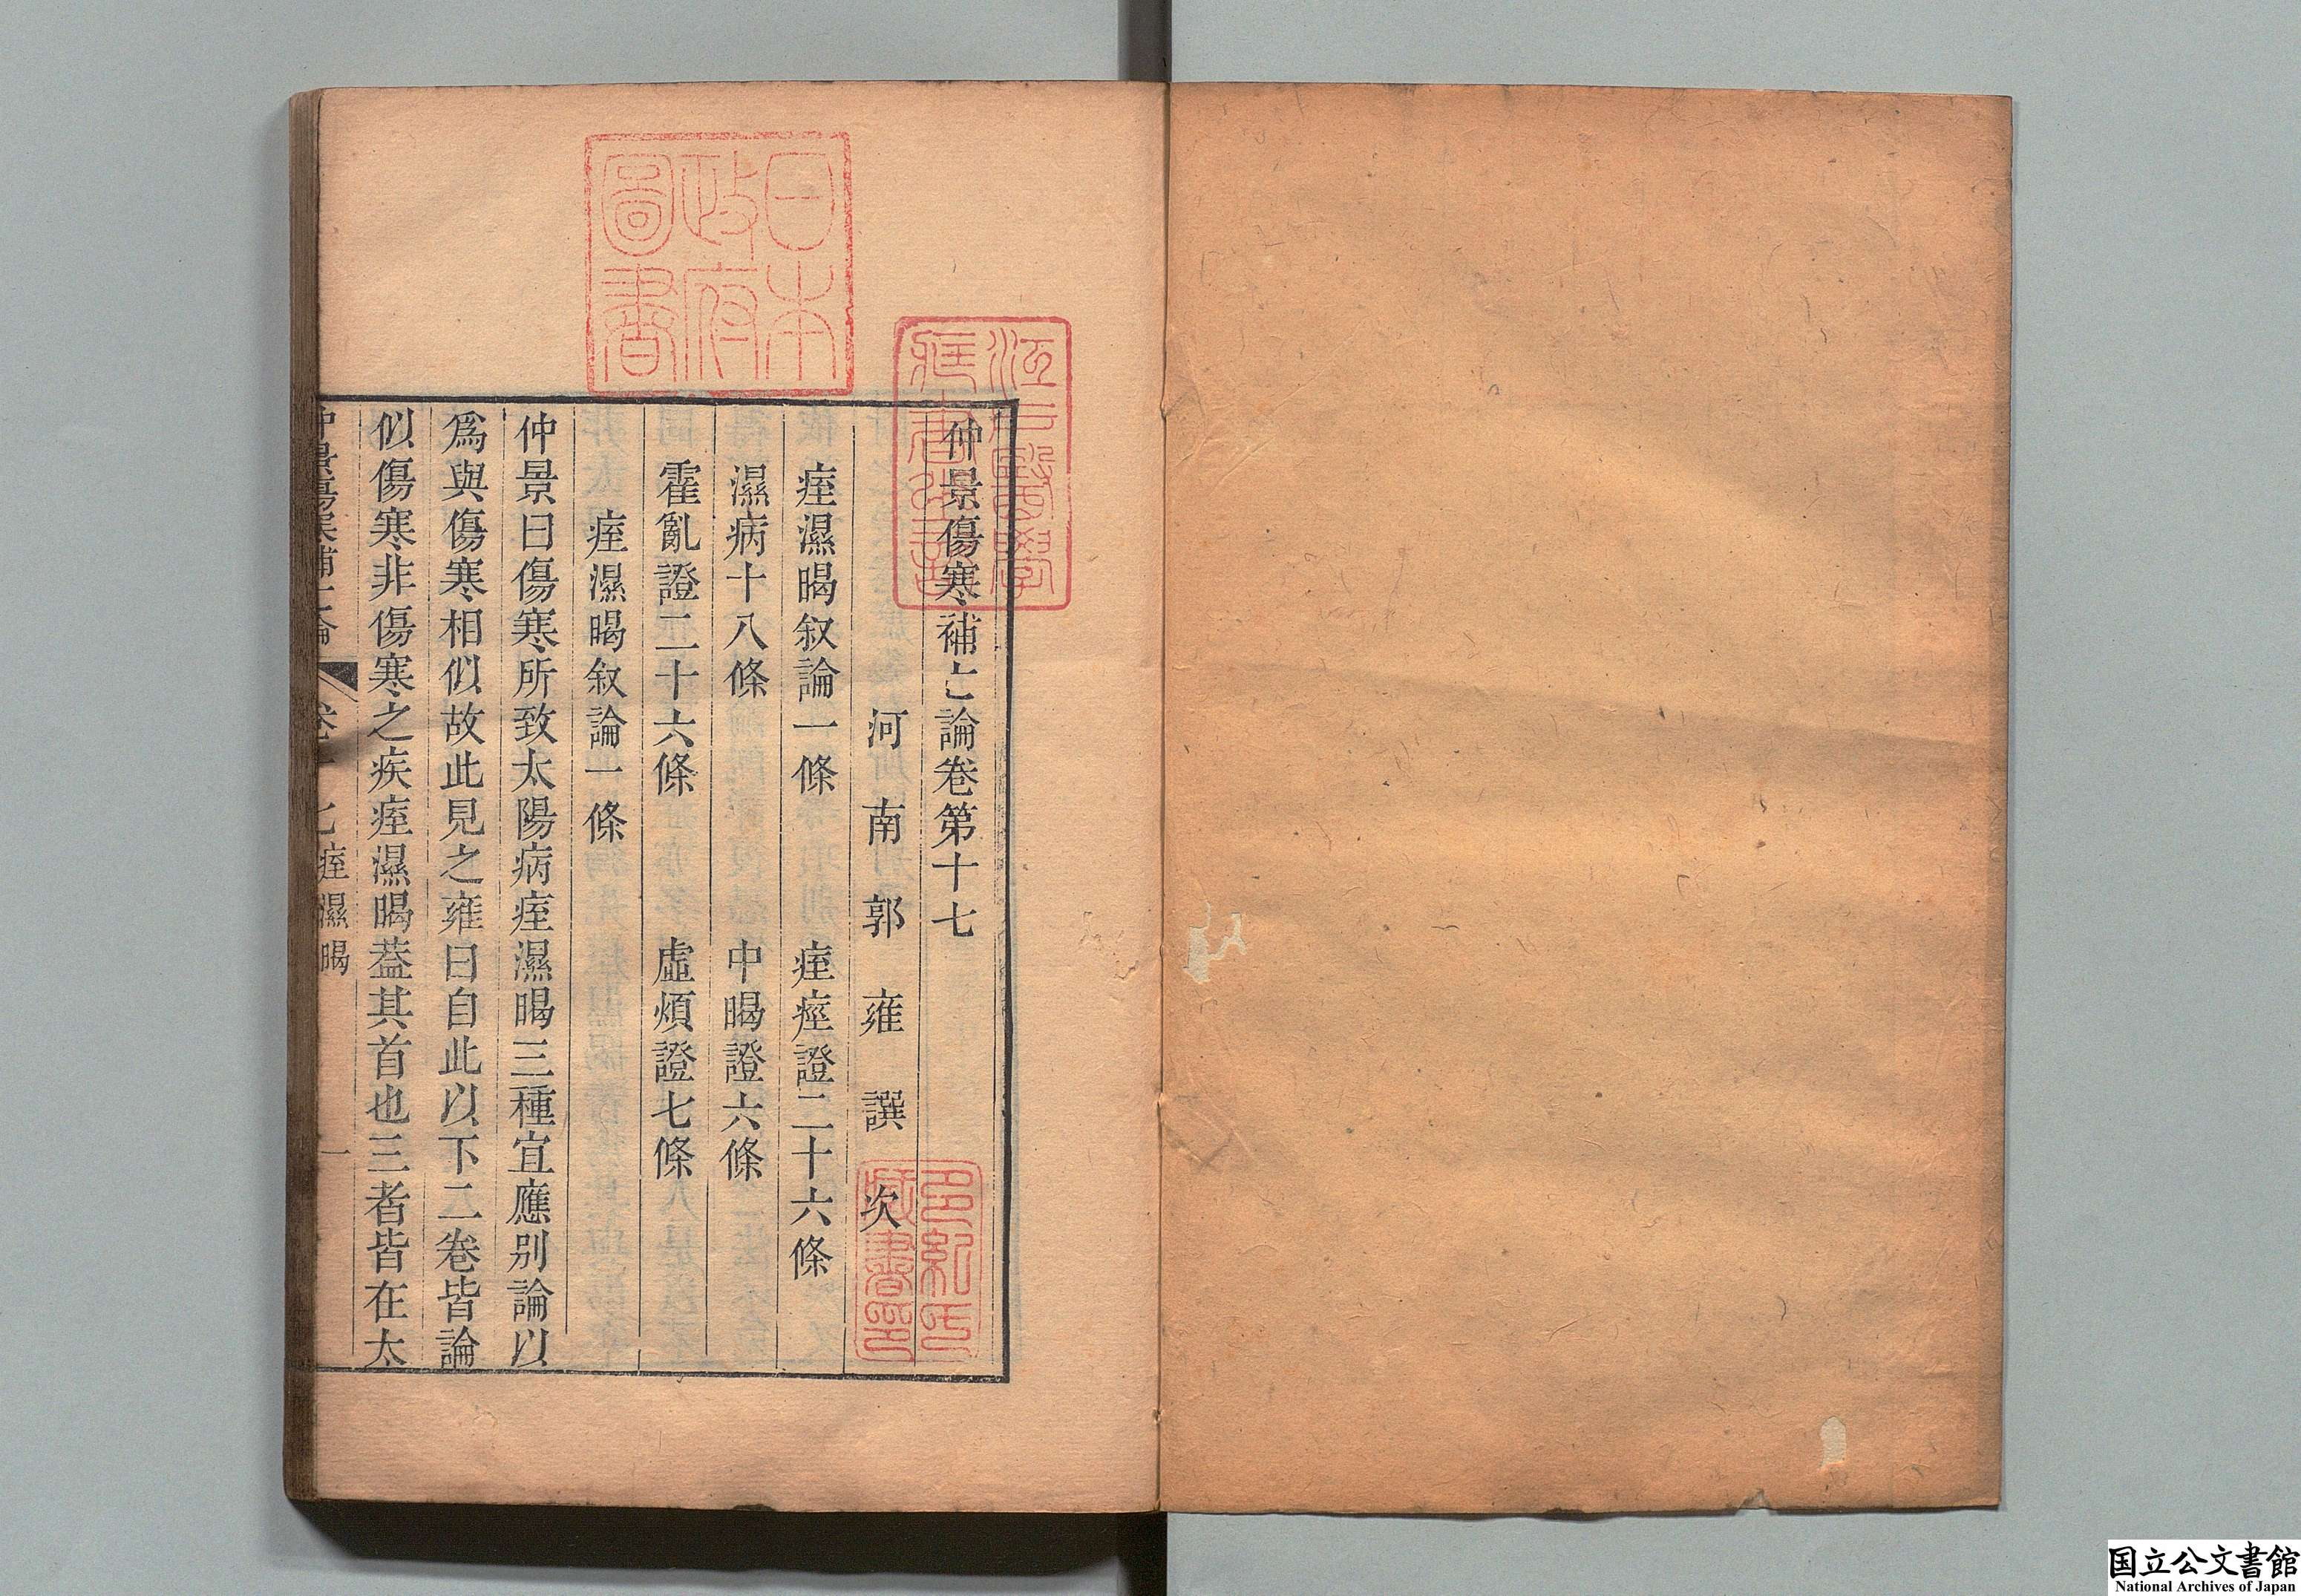 仲景傷寒補亡論卷第十七
河南郭雍譔次
痓濕暍叙論一條　痓痙證二十六條
濕病十八條　中暍證六條
霍亂證二十六條　虛煩證七條
痓濕暍叙論一條
仲景曰傷寒所致太陽病痓濕暍三種宜應别論以
爲與傷寒相似故此見之雍曰自此以下二卷皆論
似傷寒非傷寒之疾痓濕暍葢其首也三者皆在太
仲景傷寒補亡論　卷十七痓濕暍　一
日本
政府
圖書
江戸醫學
藏書之記
多紀氏
藏書印
国立公文書館
National Archives of Japan